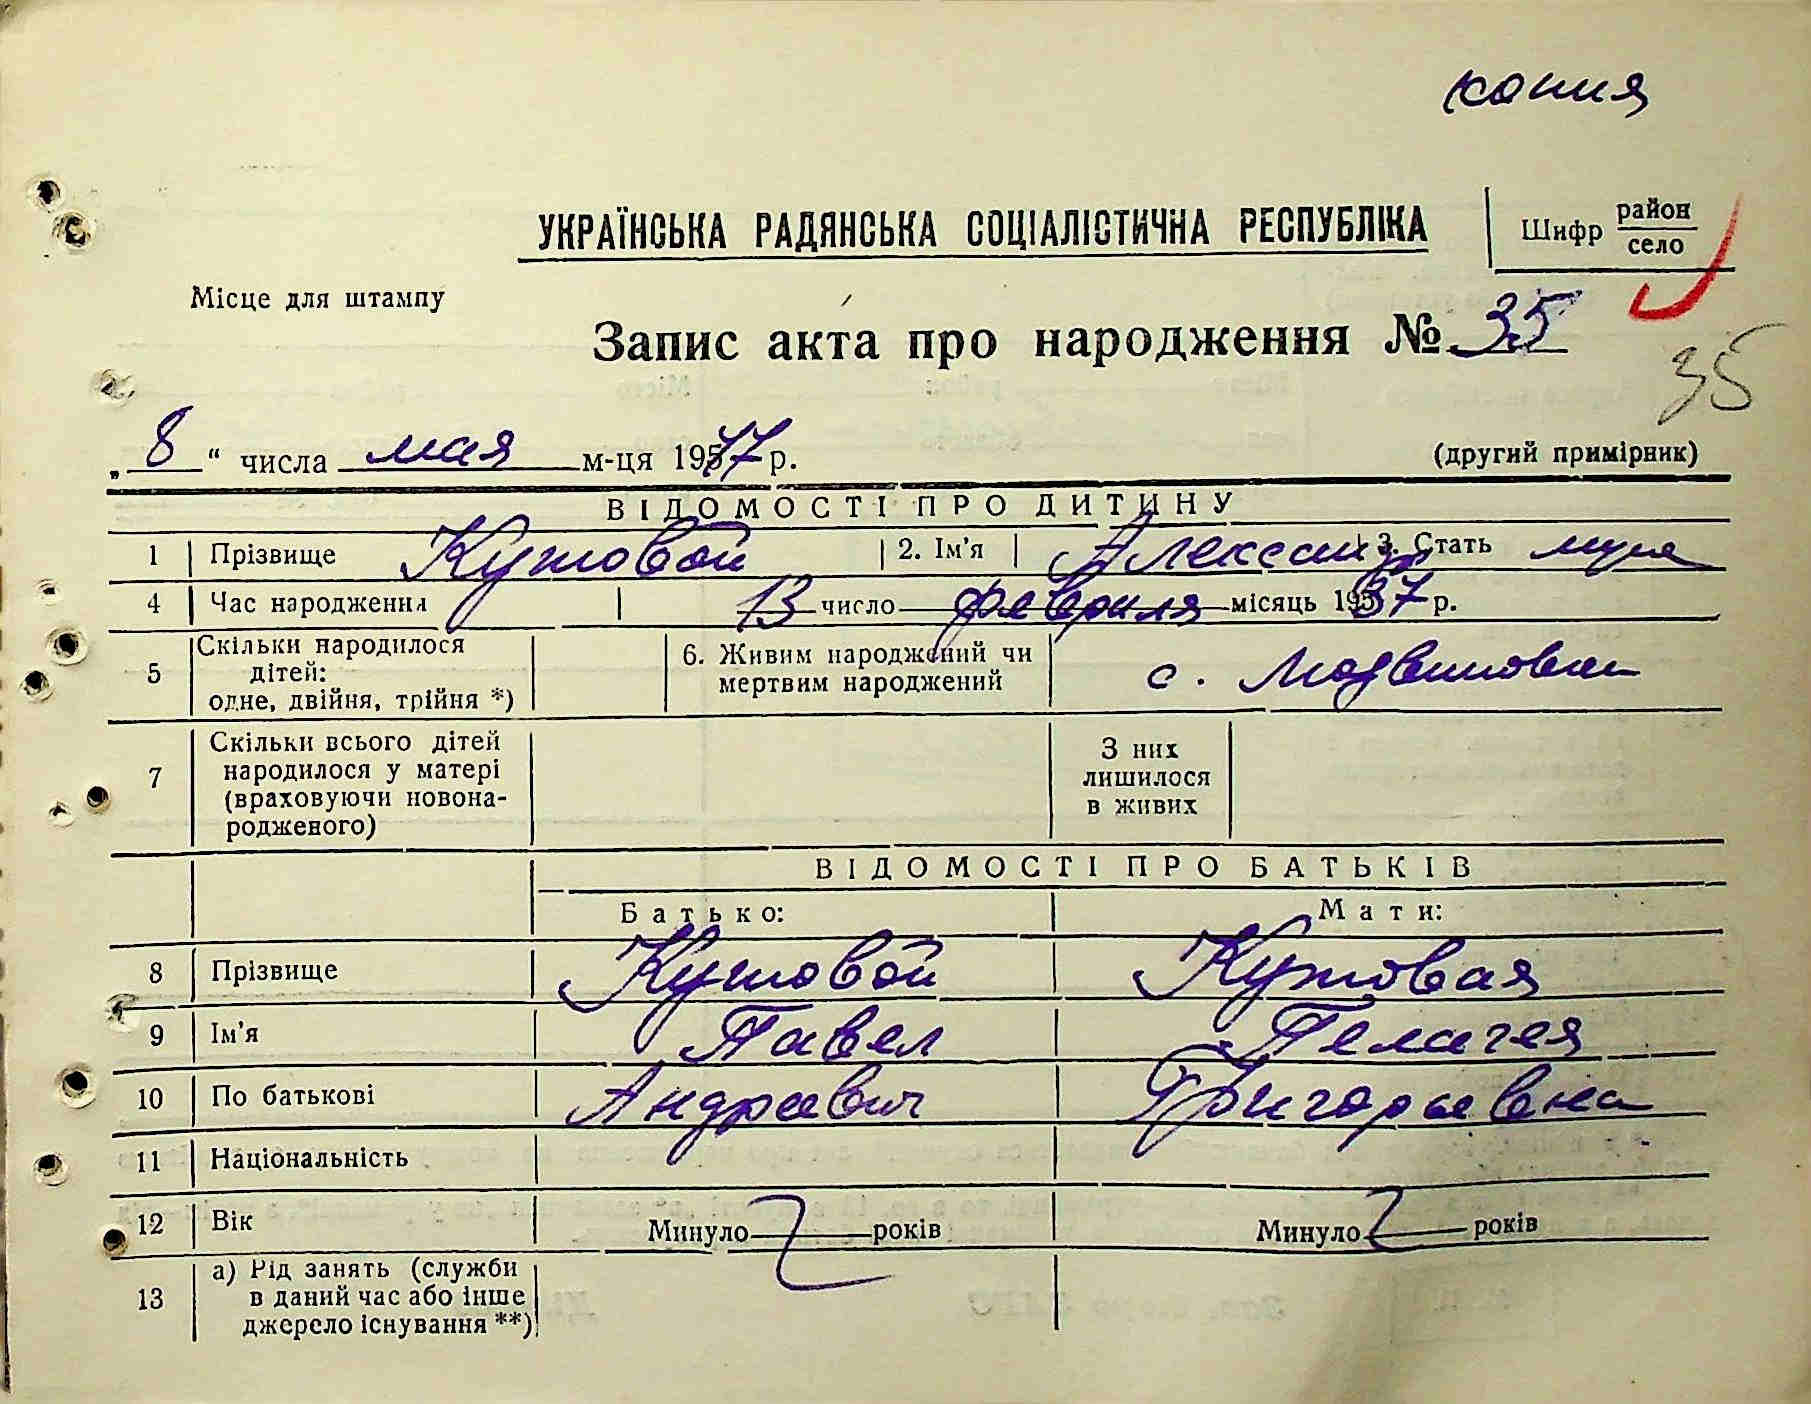 копия
УКРАЇНСЬКА РАДЯНСЬКА СОЦІАЛІСТИЧНА РЕСПУБЛІКА
Шифр район
село
Місце для штампу
Запис акта про народження № 35
35
„ 8 “ числа мая м-ця 1977 р.
(другий примірник)
ВІДОМОСТІ ПРО ДИТИНУ
1 Прізвище Кутовой 2. Ім'я Александр 3. Стать муж
4 Час народження 13 число февраля місяць 1937 р.
5 Скільки народилося дітей: одне, двійня, трійня *) 6. Живим народжений чи мертвим народжений с.
7 Скільки всього дітей народилося у матері (враховуючи новонародженого) З них лишилося в живих
ВІДОМОСТІ ПРО БАТЬКІВ
Батько: Мати:
8 Прізвище Кутовой Кутовая
9 Ім'я Павел Пелагея
10 По батькові Андреевич Григорьевна
11 Національність
12 Вік Минуло років Минуло років
13 а) Рід занять (служби в даний час або інше джерело існування **)